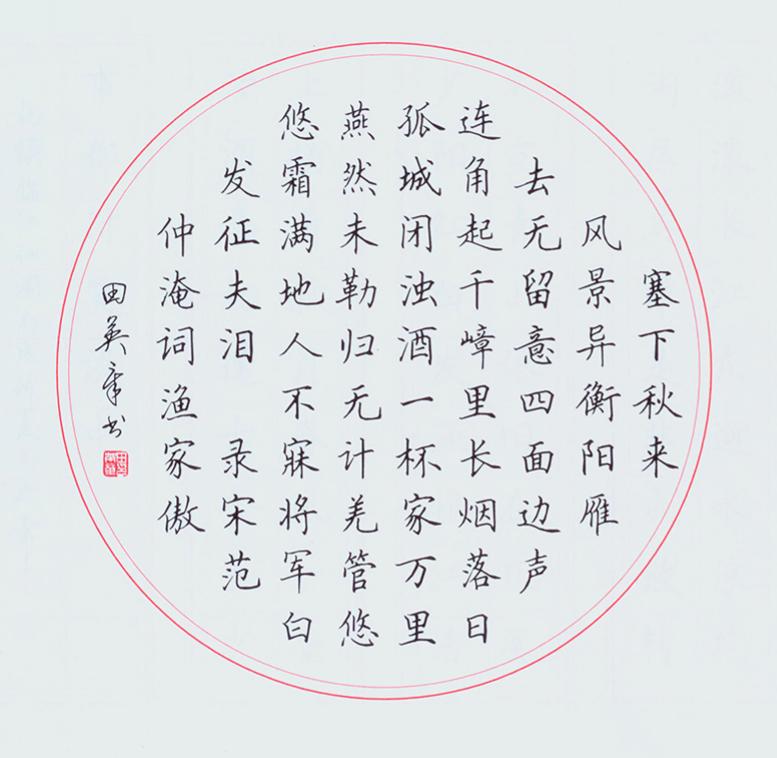 塞下秋来
风景异衡阳雁
去无留意四面边声
连角起千嶂里长烟落日
孤城闭浊酒一杯家万里
燕然未勒归无计羌管悠
悠霜满地人不寐将军白
发征夫泪 录宋范
仲淹词渔家傲
田英章书